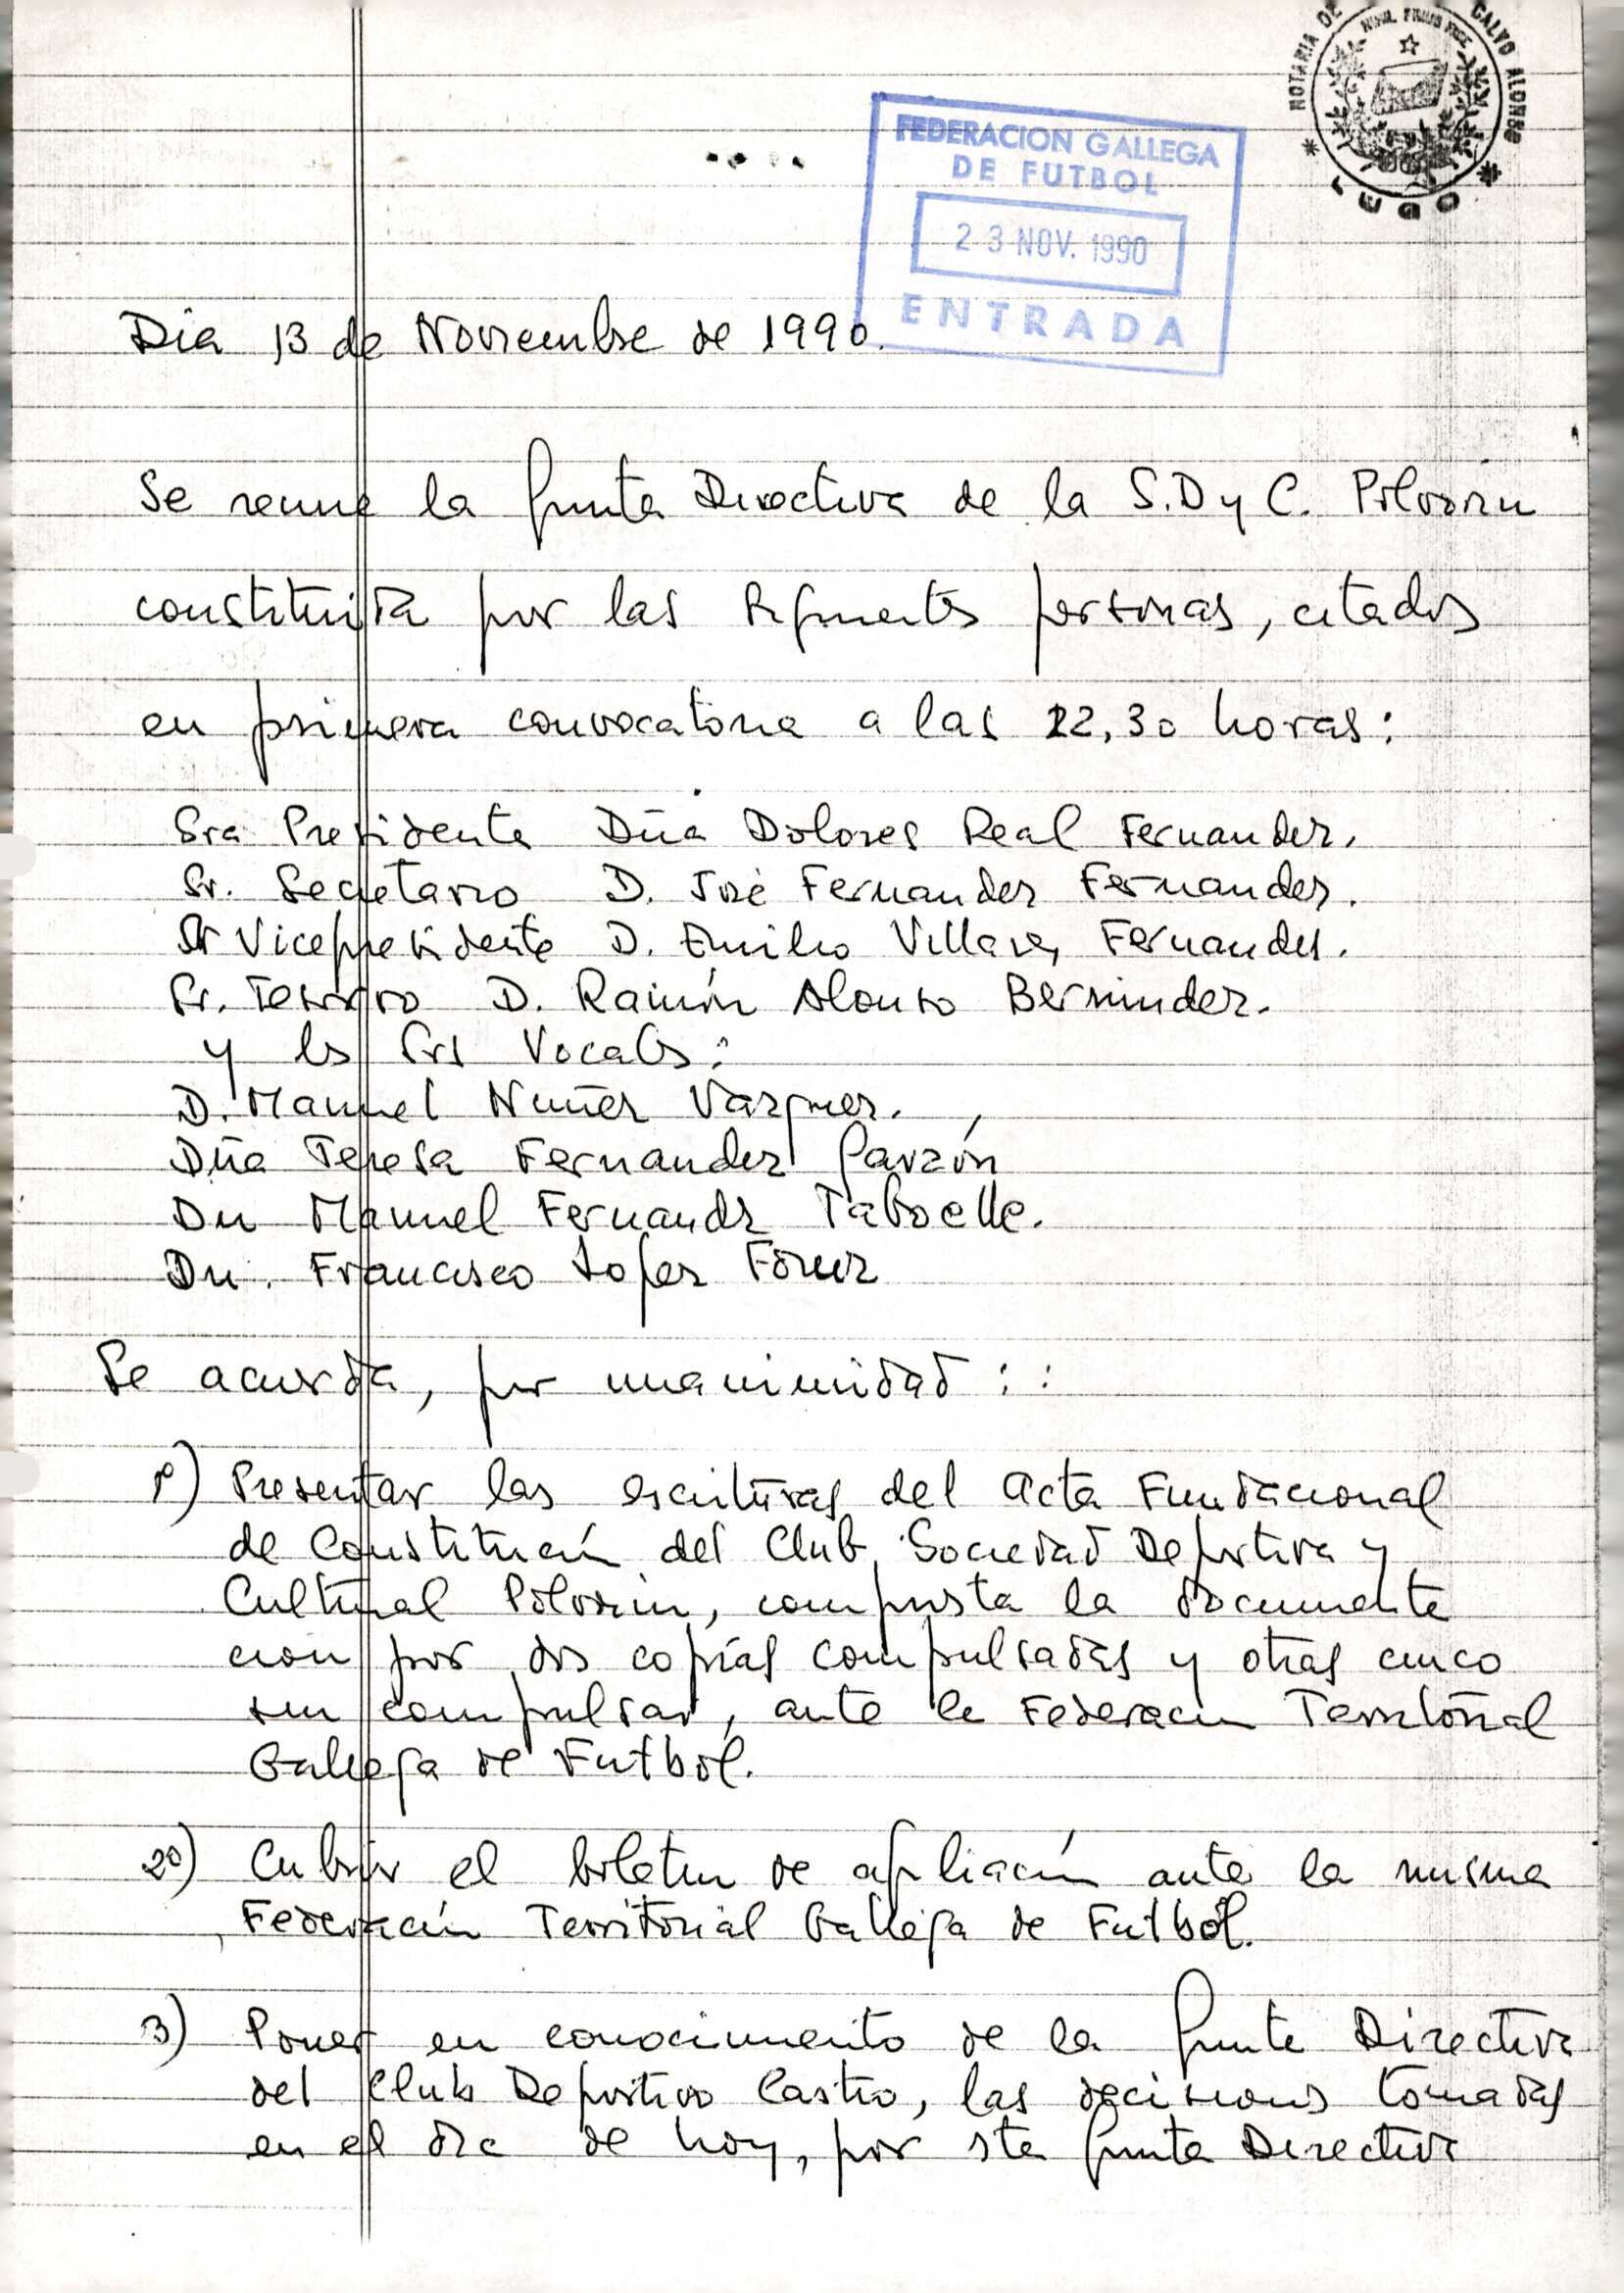 NOTARIA DE CALVO ALONSO
NIHIL PRIUS FIDE
LUGO
FEDERACION GALLEGA
DE FUTBOL
23 NOV. 1990
ENTRADA
Dia 13 de Noviembre de 1990.
Se reune la Junta Directiva de la S.D y C. Polvorin
constituida por las siguientes personas, citados
en primera convocatoria a las 22,30 horas:
Sra Presidenta Dña Dolores Real Fernandez.
Sr. Secretario D. José Fernandez Fernandez.
Sr Vicepresidente D. Emilio Fernandez.
Sr. Tesorero D. Ramón Alonso Bermudez.
y los Srs Vocales:
D. Manuel Nuñez Vazquez.
Dña Teresa Fernandez Garzón
Dn Manuel Fernandz Taboelle.
Dn. Francisco Lopez
Se acuerda, por unanimidad::
1º) Presentar las escrituras del Acta Fundacional
de Constitución del Club Sociedad Deportiva y
Cultural Polvorin, compuesta la documenta
cion por dos copias compulsadas y otras cinco
sin compulsar, ante la Federacin Territorial
Gallega de Futbol.
2º) Cubrir el boletin de afiliación ante la misma
Federación Territorial Gallega de Futbol.
3) Poner en conocimiento de la Junta Directiva
del Club Deportivo Castro, las decisiones tomadas
en el dia de hoy, por esta Junta Directiva